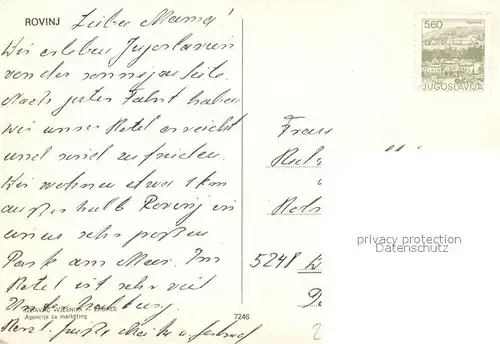 ROVINJ
Liebe Mama!
Wir erleben Jugoslawien
von der sonnigen Seite.
Nach guter Fahrt haben
wir unser Hotel erreicht
und sind zufrieden.
Wir wohnen etwa 1 km
außerhalb Rovinj in
einem sehr großen
Park am Meer. Im
Hotel ist sehr viel
Herzl. Grüße
Agencija za marketing
7246
5.60
JUGOSLAVIJA
Frau
5248
privacy protection
DatenSchutz